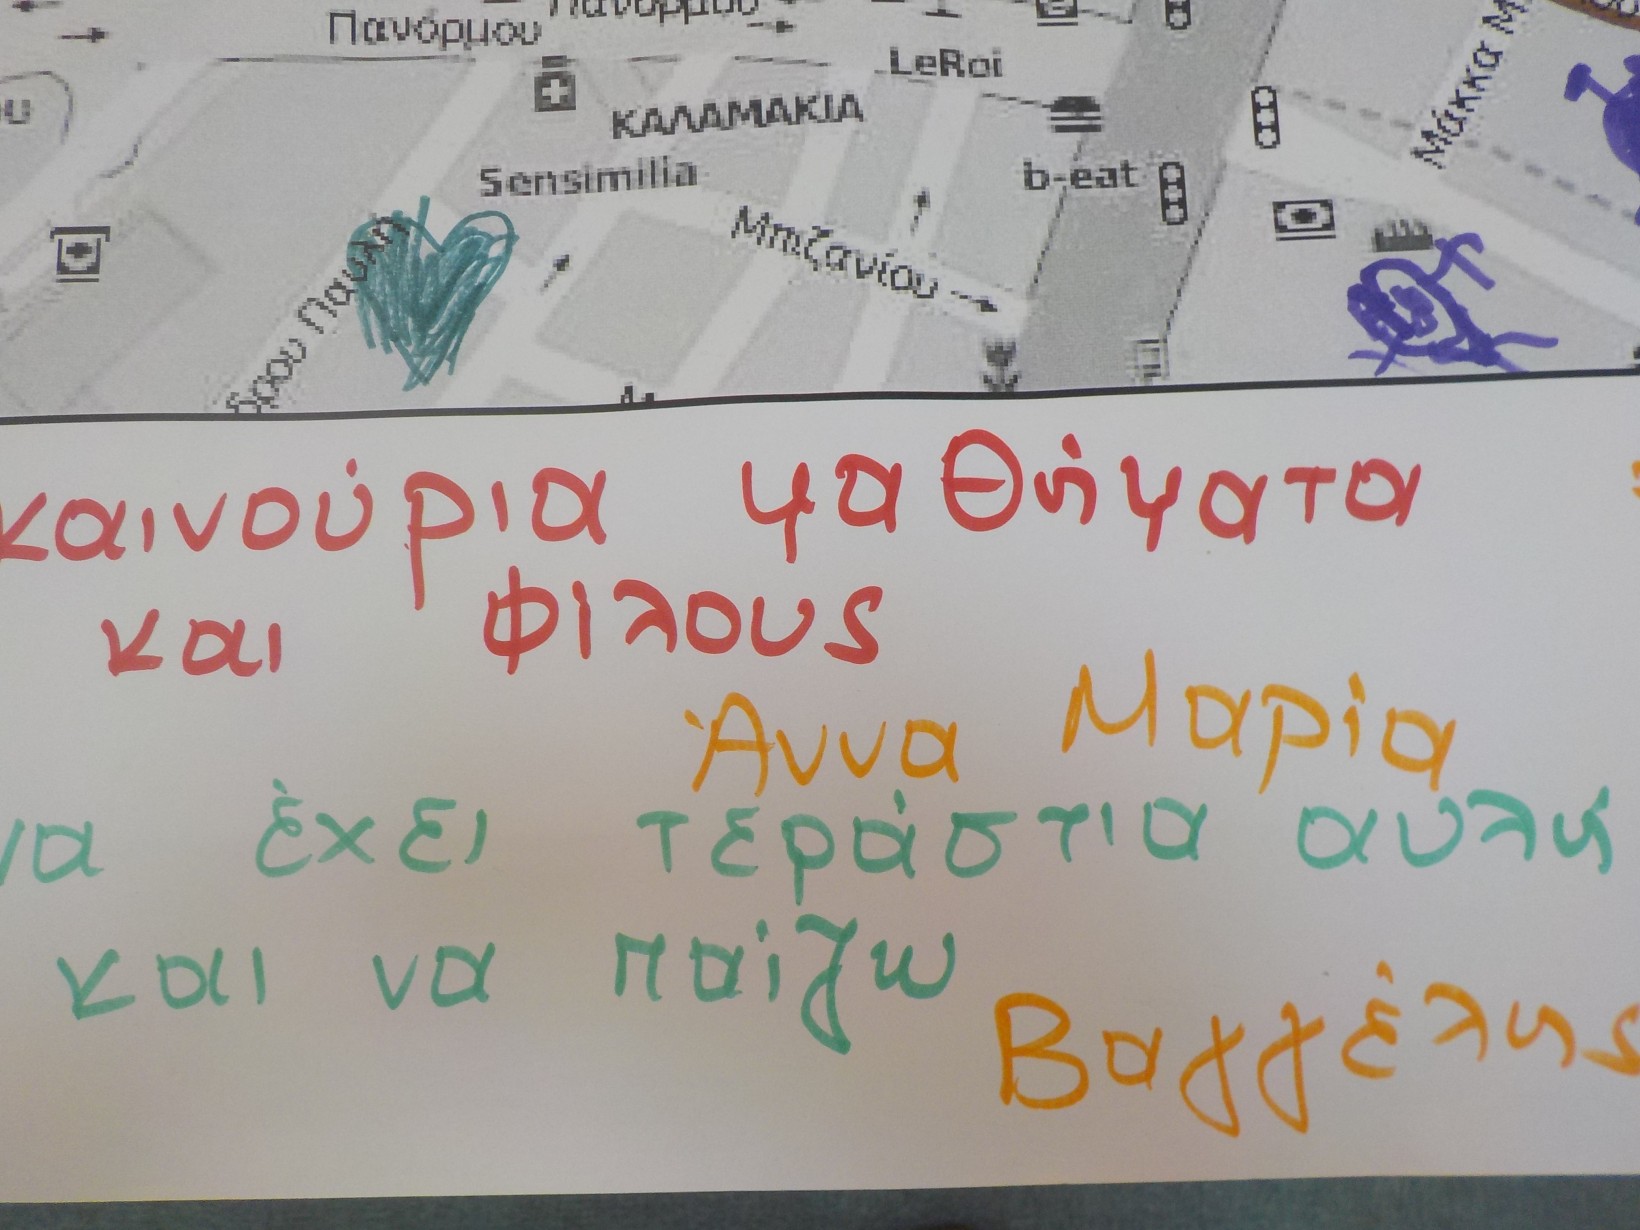 Πανόρμου
Πανόρμου
LeRoi
ΚΑΛΑΜΑΚΙΑ
Sensimilia
b-eat
Μάκκα
Μπιζανίου
Παυλή
καινούρια μαθήματα
και φίλους
Άννα Μαρία
να έχει τεράστια αυλή
και να παίζω
Βαγγέλης